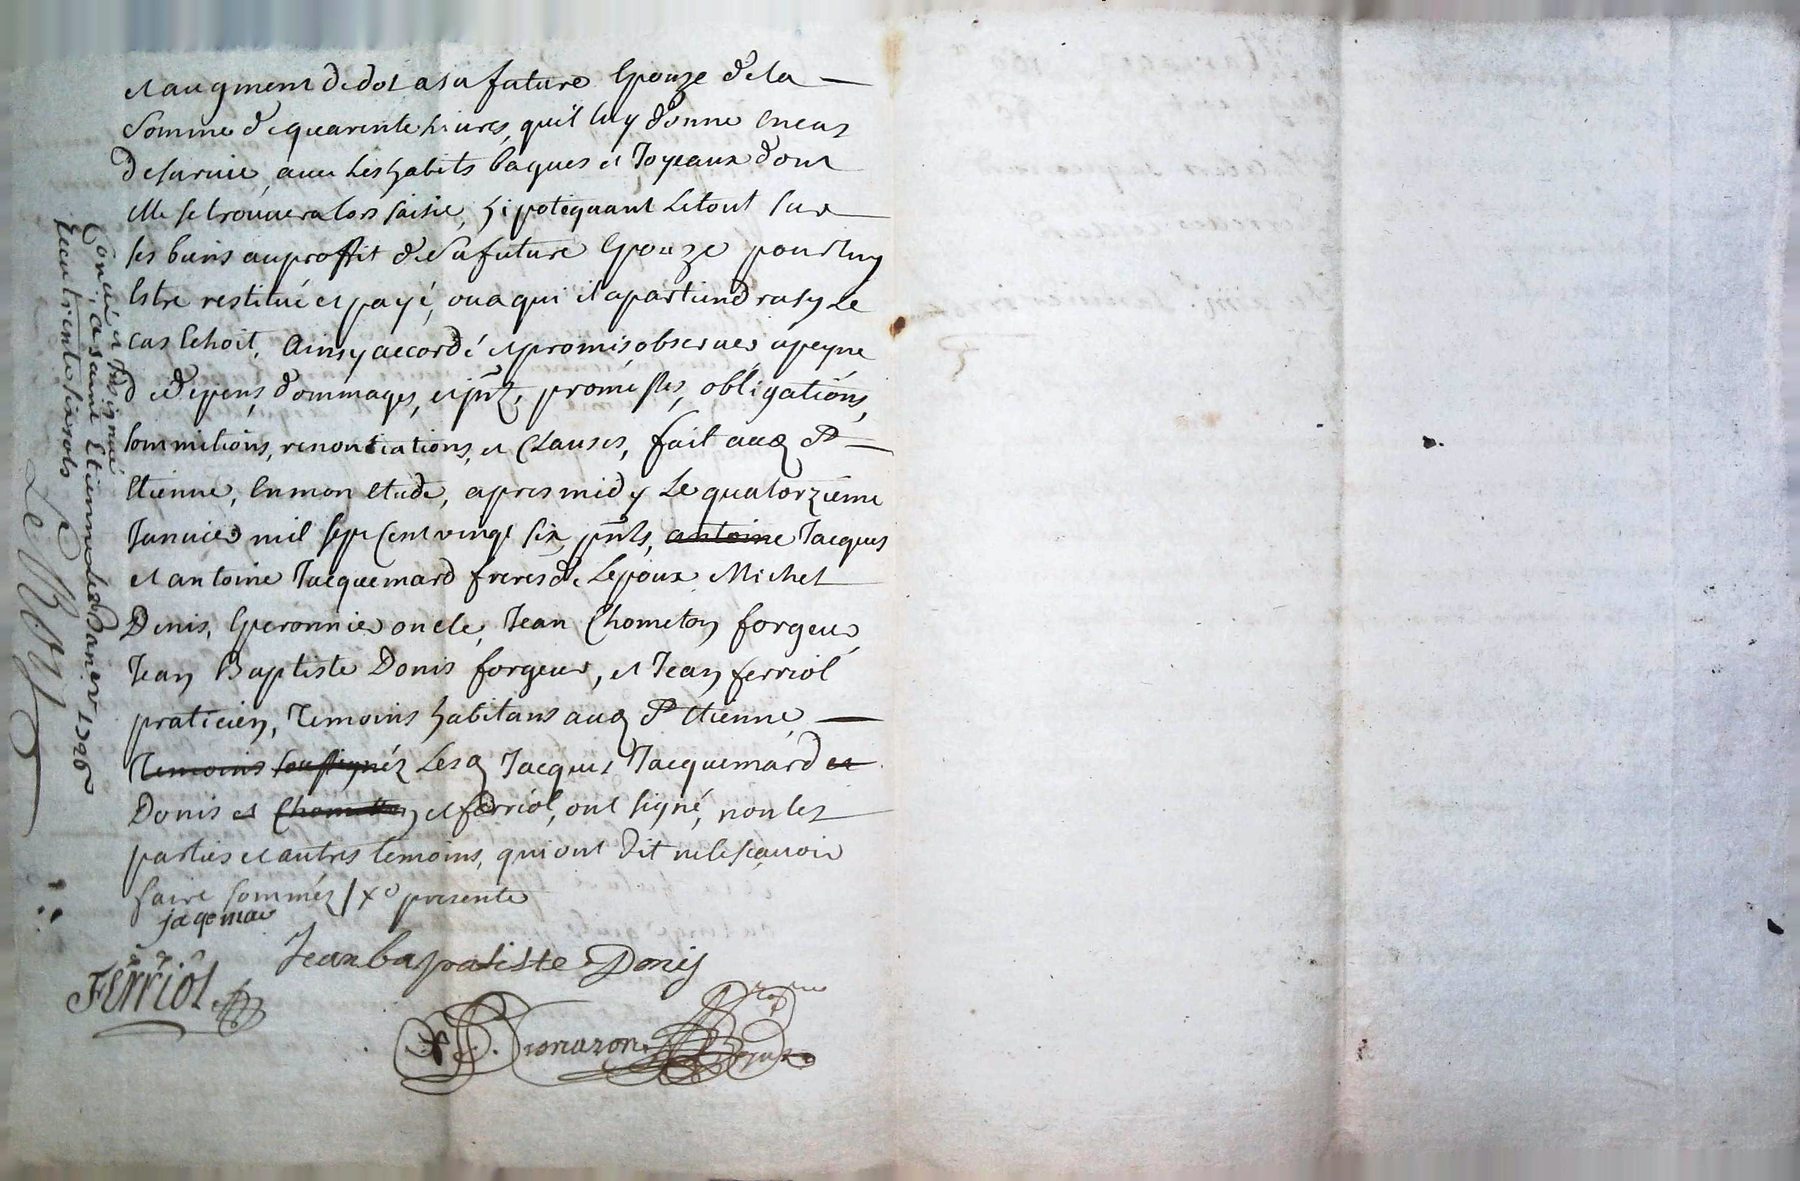 et augment de dot a sa future Epouze de la
Somme de quarente Livres, qu'il luy donne en cas
de survie, avec Les habits bagues et Joyeaux dont
elle se trouvera lors saisie, hipotequant Le tout sur
ses biens au proffit de sa future Epouze pour luy
Estre restitué et payé, ou a qui il apartiendra sy Le
cas Echoit, Ainsy accordé et promis observer a peyne
de depens, dommages, et jnts, promesses, obligations,
soumitions, renontiations, et Clauses, fait aud St
Etienne, En mon Etude, apres midy Le quatorzième
Janvier mil sept Cent vingt six, pnts, antoine Jacques
et antoine Jacquemard freres de Lepoux Michel
Denis, Eperonnier oncle, Jean Chometon forgeur,
Jean Baptiste Donis forgeur, et Jean ferriol
praticien, Temoins habitans aud St Etienne,
Temoins soussignéz Lesd Jacques Jacquemard et
Donis et Chometton et ferriol, ont signé, non les
parties et autres temoins, qui ont dit ne le sçavoir
faire sommés / xo presente
jaqemar
Jean bapatiste Donis
Ferriol
Controllé et Insinué
a saint Etienne le 1726
Receu trente six sols